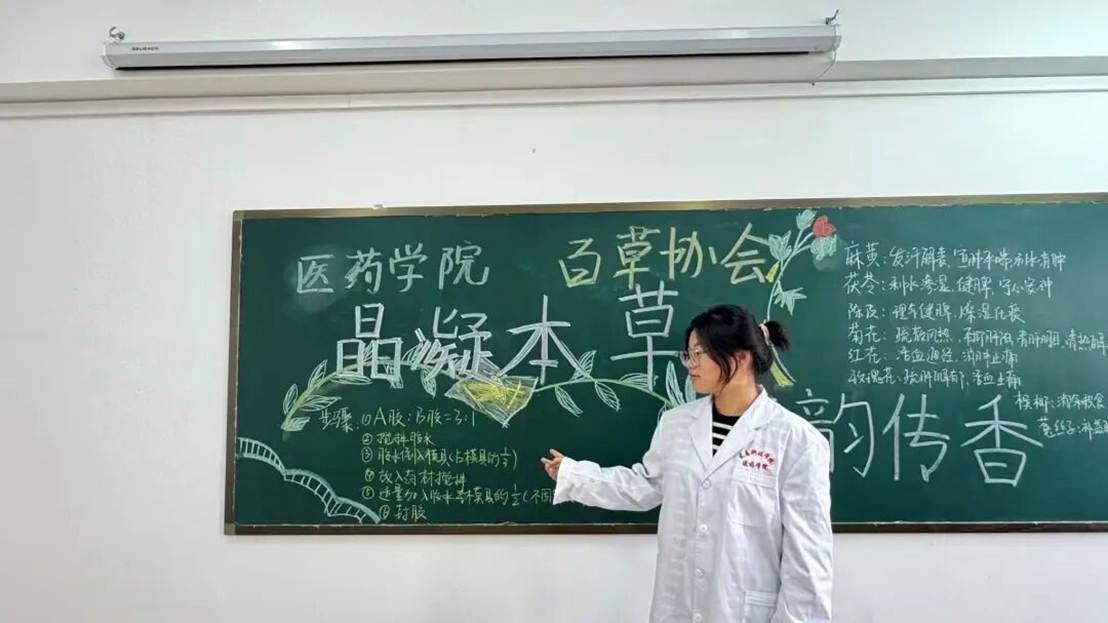 医药学院 百草协会
晶凝本草
韵传香
步骤:①A胶:B胶=3:1
②搅拌胶水
③胶水倒入模具(占模具的1/3)
④放入药材搅拌
⑥封胶
麻黄:发汗解表、宣肺平喘、利水消肿
茯苓:利水渗湿、健脾、宁心安神
陈皮:理气健脾、燥湿化痰
菊花:疏散风热、平抑肝阳、清肝明目、清热解
红花:活血通经、消肿止痛
玫瑰花:疏肝解郁、活血止痛
槟榔:消积
菟丝子: